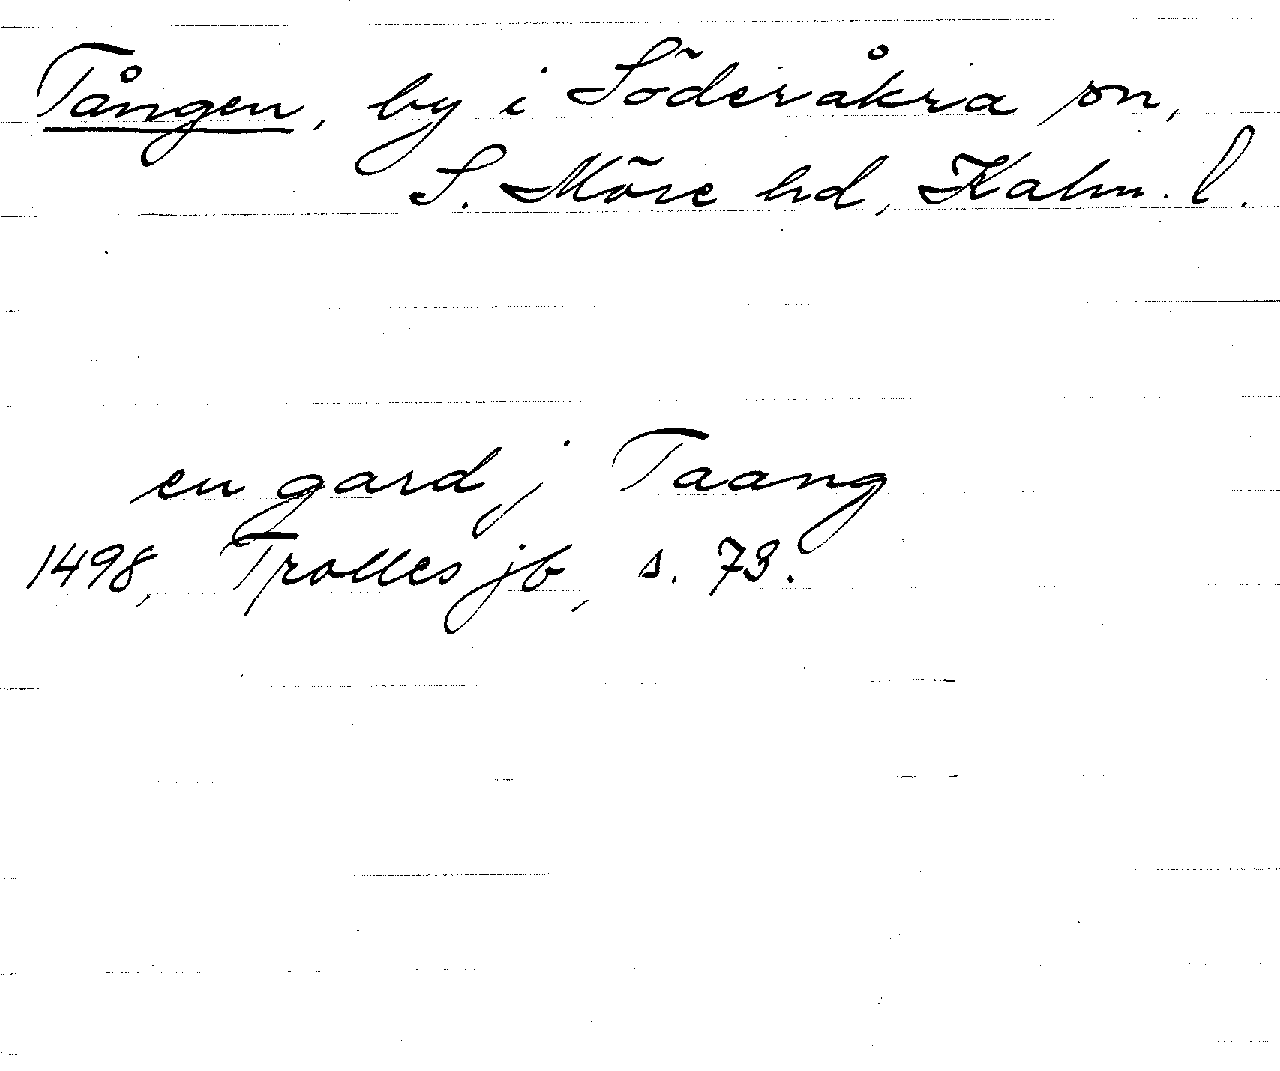 Tången, by i Söderåkra sn,
S. Möre hd, Kalm. l.
en gard j Taang
1498, Trolles jb, s. 73.